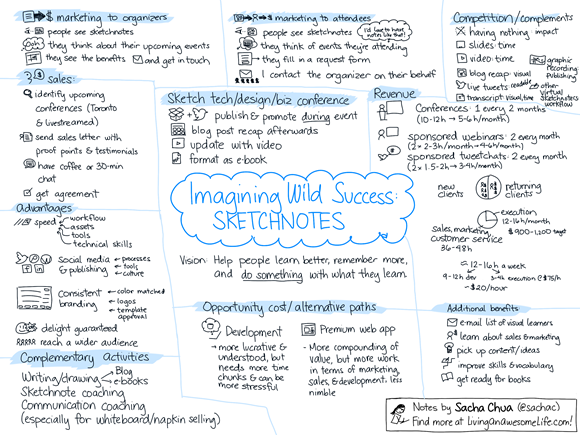 $ marketing to organizers
people see sketchnotes
they think about their upcoming events
they see the benefits and get in touch
$ marketing to attendees
people see sketchnotes
I'd love to have notes like that!
they think of events they're attending
they fill in a request form
I contact the organizer on their behalf
Competition/complements
having nothing impact
slides: time
video: time
blog recap: visual
live tweets: readable
transcript: visual, time
graphic recording: publishing
other virtual sketchnoters workflow
3 $ sales:
identify upcoming
conferences (Toronto
& livestreamed)
send sales letter with
proof points & testimonials
have coffee or 30-min
chat
get agreement
Sketch tech/design/biz conference
publish & promote during event
blog post recap afterwards
update with video
format as e-book
Revenue
Conferences: 1 every 2 months
(10-12h → 5-6h/month)
sponsored webinars: 2 every month
(2 x 2-3h/month → 4-6h/month)
sponsored tweetchats: 2 every month
(2 x 1.5-2h → 3-4h/month)
new clients
returning clients
execution
12-16h/month
$900-1,100
sales, marketing,
customer service
36-48h
12-16h a week
9-12h dev 3-4h execution @ $75/h
~$20/hour
Imagining Wild Success:
SKETCHNOTES
Vision: Help people learn better, remember more,
and do something with what they learn.
Advantages
speed
workflow
assets
tools
technical skills
social media
& publishing
processes
tools
culture
Consistent
branding
color matched
logos
template
approval
delight guaranteed
reach a wider audience
Complementary activities
Writing/drawing
Blog
e-books
Sketchnote coaching
Communication coaching
(especially for whiteboard/napkin selling)
Opportunity cost/alternative paths
Development
→ more lucrative &
understood, but
needs more time
chunks & can be
more stressful
Premium web app
- More compounding of
value, but more work
in terms of marketing,
sales, & development, less
nimble
Additional benefits:
e-mail list of visual learners
learn about sales & marketing
pick up content/ideas
improve skills & vocabulary
get ready for books
Notes by Sacha Chua (@sachac)
Find more at LivingAnAwesomeLife.com!